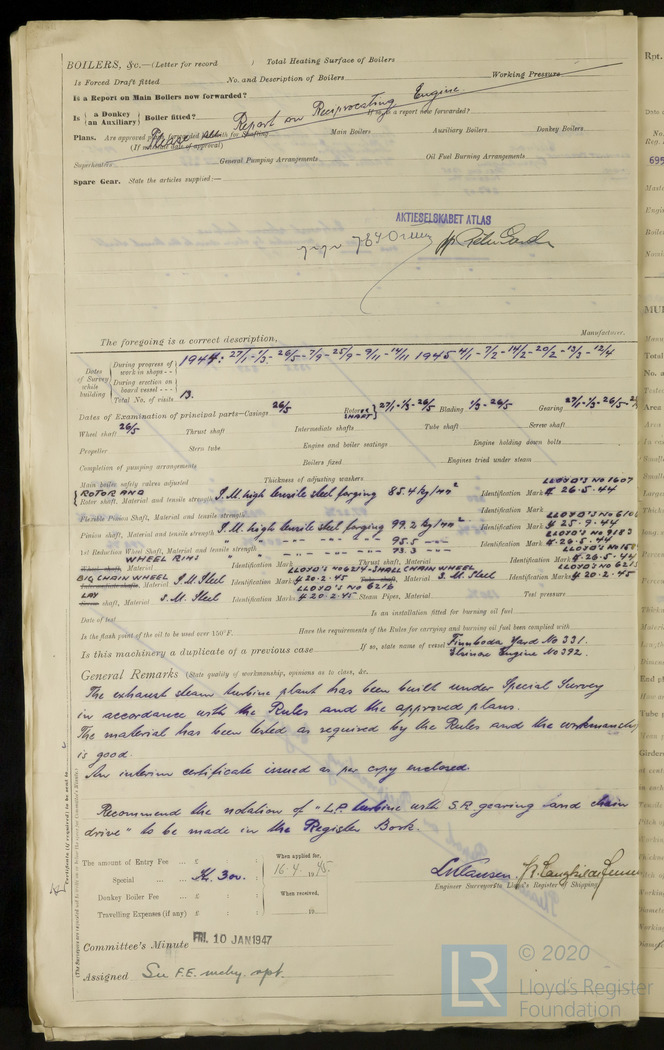 BOILERS, &c.—(Letter for record ) Total Heating Surface of Boilers
Is Forced Draft fitted No. and Description of Boilers Working Pressure
Is a Report on Main Boilers now forwarded?
Is { a Donkey / an Auxiliary } Boiler fitted? If so, is a report now forwarded?
Please see Report on Reciprocating Engine.
Plans. Are approved plans forwarded herewith for Shafting Main Boilers Auxiliary Boilers Donkey Boilers
(If not state date of approval)
Superheaters General Pumping Arrangements Oil Fuel Burning Arrangements
Spare Gear. State the articles supplied:—
AKTIESELSKABET ATLAS
The foregoing is a correct description, Manufacturer.
Dates of Survey while building
During progress of work in shops - - 1944: 27/1-1/3-26/5-7/9-25/9-9/11-14/11 1945 4/1-7/2-14/2-20/2-13/3-12/4
During erection on board vessel - - -
Total No. of visits 13.
Dates of Examination of principal parts—Casings 26/5 Rotor SHAFT 27/1-1/3-26/5 Blading 1/3-26/5 Gearing 27/1-1/3-26/5-
Wheel shaft 26/5 Thrust shaft Intermediate shafts Tube shaft Screw shaft
Propeller Stern tube Engine and boiler seatings Engine holding down bolts
Completion of pumping arrangements Boilers fixed Engines tried under steam
Main boiler safety valves adjusted Thickness of adjusting washers
ROTOR AND LLOYD'S No 1607
Rotor shaft, Material and tensile strength S.M. high tensile steel forging 85.4 kg/mm² Identification Mark # 26-5-44
Flexible Pinion Shaft, Material and tensile strength LLOYD'S No
Pinion shaft, Material and tensile strength S.M. high tensile steel forging 99.2 kg/mm² Identification Mark # 25-9-44
" " -- -- -- 95.5 -- LLOYD'S No 9183 # 26-5-44
1st Reduction Wheel Shaft, Material and tensile strength " -- -- -- -- 73.3 -- LLOYD'S No
WHEEL RIMS Identification Mark # 26-5-44
Wheel shaft, Material Identification Mark Thrust shaft, Material
LLOYD'S No 6214 SMALL CHAIN WHEEL LLOYD'S No
BIG CHAIN WHEEL Intermediate shafts, Material S.M. Steel Identification Marks # 20-2-45 Tube shaft, Material S.M. Steel Identification Marks # 20-2-45
LAY LLOYD'S No 6216
Screw shaft, Material S.M. Steel Identification Marks # 20-2-45 Steam Pipes, Material Test pressure
Date of test Is an installation fitted for burning oil fuel
Is the flash point of the oil to be used over 150°F. Have the requirements of the Rules for carrying and burning oil fuel been complied with
Is this machinery a duplicate of a previous case If so, state name of vessel Finnboda Yard No 331.
Elsinore Engine No 392.
General Remarks (State quality of workmanship, opinions as to class, &c.
The exhaust steam turbine plant has been built under Special Survey
in accordance with the Rules and the approved plans.
The material has been tested as required by the Rules and the workmanship
is good.
An interim certificate issued as per copy enclosed.
Recommend the notation of "L.P. turbine with S.R. gearing and chain
drive" to be made in the Register Book.
The amount of Entry Fee ... £ : : When applied for,
Special ... ... £ Kr. 300. 16.4. 1945.
Donkey Boiler Fee ... £ : : When received,
Travelling Expenses (if any) £ : : 19
Engineer Surveyor to Lloyd's Register of Shipping
Committee's Minute FRI. 10 JAN 1947
Assigned See F.E. mchy. rpt.
Certificate (if required) to be sent to
© 2020
LR Lloyd's Register
Foundation
Rpt.